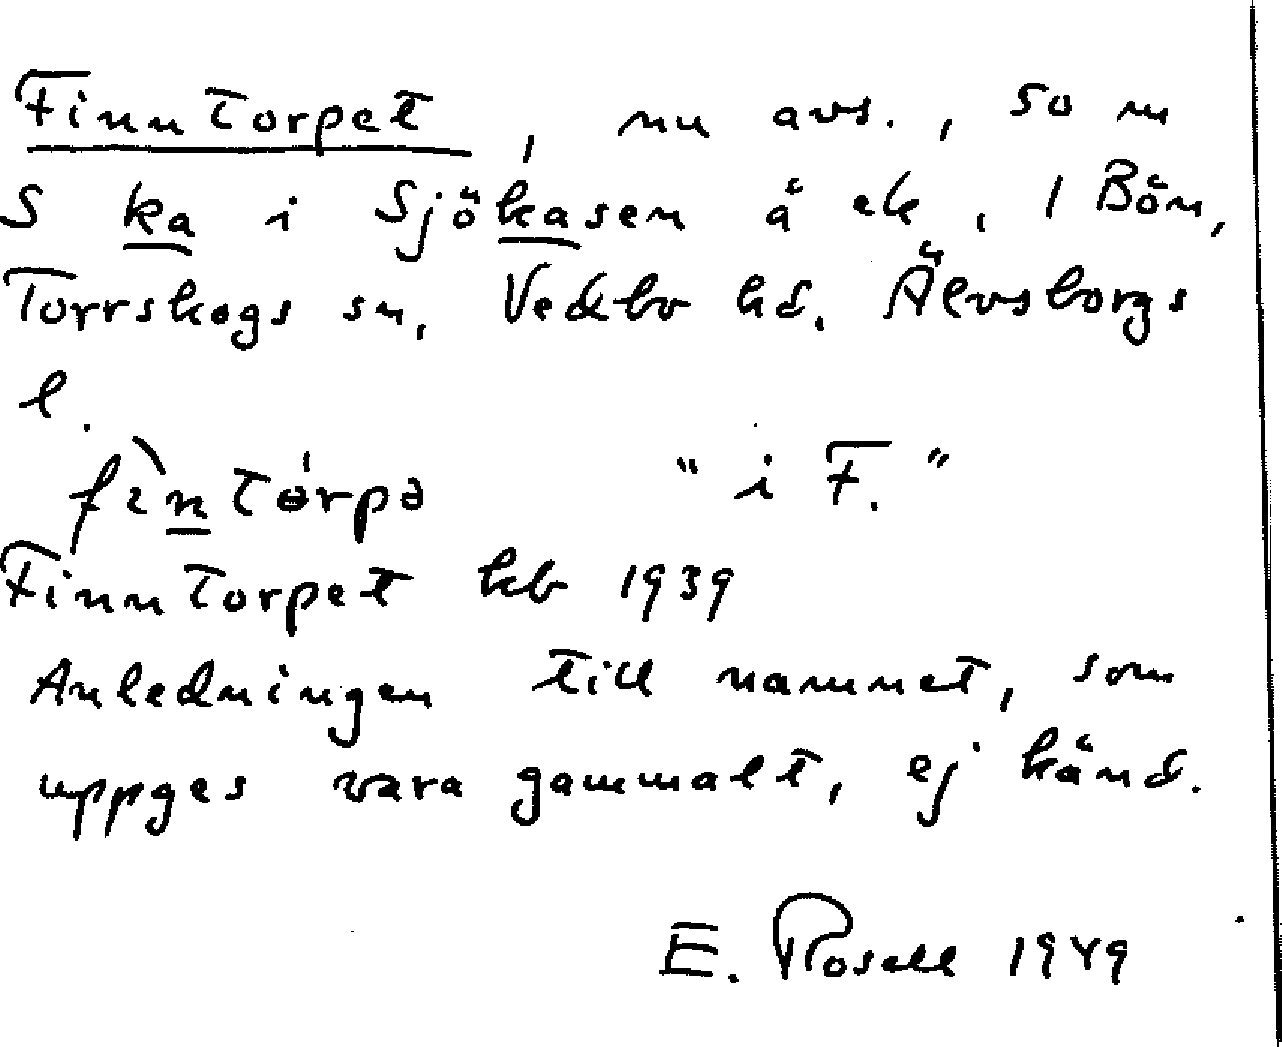 Finntorpet, nu avs., som
S ka i Sjökasen å ek. 1 Bön,
Torrskogs sn, Vedbo hd. Älvsborgs
l.
fìntó̵rpə "i F."
Finntorpet kb 1939
Anledningen till namnet, som
uppges vara gammalt, ej känd.
E. Rosell 1949